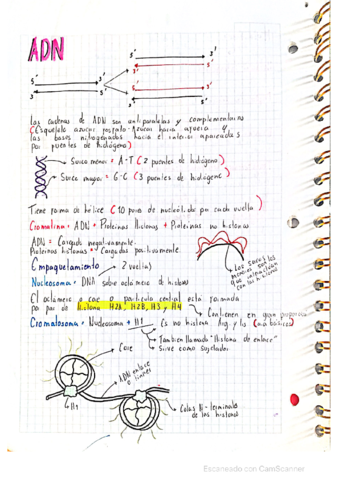 ADN
5' 3'
3' 5'
5' 3'
3' 5'
5' 3'
3' 5'
Las cadenas de ADN son antiparalelas y complementarias
(Esqueleto azúcar fosfato-Azúcar hacia afuera y
las bases nitrogenadas hacia el interior apareadas
por puentes de hidrógeno)
Surco menor = A-T (2 puentes de hidrógeno)
Surco mayor = G-C (3 puentes de hidrógeno)
Tiene forma de hélice (10 pares de nucleót. por cada vuelta)
Cromatina = ADN + Proteínas Histonas + Proteínas no histonas
ADN = Cargado negativamente.
Proteínas histonas = Cargadas positivamente.
Empaquetamiento 2 vueltas
Los surcos
menores son
que interactúan
con las histonas
Nucleosoma = DNA sobre octámero de histonas
El octámero o core o partícula central está formada
por par de Histona H2A, H2B, H3 y H4
Contienen en gran
Cromatosoma = Nucleosoma + H1 Arg. y lis (más básicos)
También llamado "Histona de enlace"
Sirve como sujetador
Core
ADN enlace
o linker
H1
Colas N-terminales
de las histonas
Escaneado con CamScanner